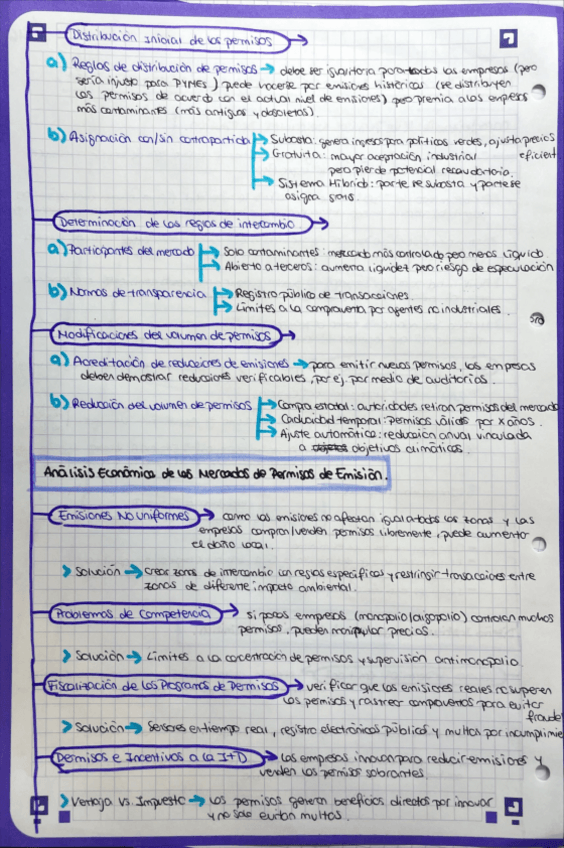 Distribución Inicial de los permisos
a) Reglas de distribución de permisos → debe ser igualitoria para todas las empresas (pero
sería injusto para PYMES) puede hacerse por emisiones históricas (se distribuyen
los permisos de acuerdo con el actual nivel de emisiones) pero premia a las empresas
más contaminantes (más antiguas y obsoletas).
b) Asignación con/sin contrapartida → Subasta: genera ingresos para políticas verdes, ajusta precios
eficient
→ Gratuita: mayor aceptación industrial
pero pierde potencial recaudatorio.
→ Sistema Híbrido: parte se subasta y parte se
asigna gratis
Determinación de las reglas de intercambio
a) Participantes del mercado → Solo contaminantes: mercado más controlado pero menos líquido
→ Abierto a terceros: aumenta liquidez pero riesgo de especulación
b) Normas de transparencia → Registro público de transacciones.
→ Límites a la compraventa por agentes no industriales.
Modificaciones del volumen de permisos
a) Acreditación de reducciones de emisiones → para emitir nuevos permisos, las empresas
deben demostrar reducciones verificables, por ej. por medio de auditorías.
b) Reducción del volumen de permisos → Compra estatal: autoridades retiran permisos del mercado
→ Caducidad temporal: permisos válidos por X años.
→ Ajuste automático: reducción anual vinculada
a objetivos climáticos.
Análisis Económico de los Mercados de Permisos de Emisión.
Emisiones No Uniformes → como las emisiones no afectan igual a todas las zonas y las
empresas compran/venden permisos libremente, puede aumentar
el daño local.
> Solución → crear zonas de intercambio con reglas específicas y restringir transacciones entre
zonas de diferente impacto ambiental.
Problemas de Competencia → si pocas empresas (monopolio/oligopolio) controlan muchos
permisos, pueden manipular precios.
> Solución → Límites a la concentración de permisos y supervisión antimonopolio.
Fiscalización de los Programas de Permisos → verificar que las emisiones reales no superen
los permisos y rastrear compraventas para evitar
fraude
> Solución → Sensores en tiempo real, registro electrónicos públicos y multas por incumplimie
Permisos e Incentivos a la I+D → Las empresas innovan para reducir emisiones y
venden los permisos sobrantes
> Ventaja vs Impuesto → Los permisos generan beneficios directos por innovar
y no solo evitan multas.